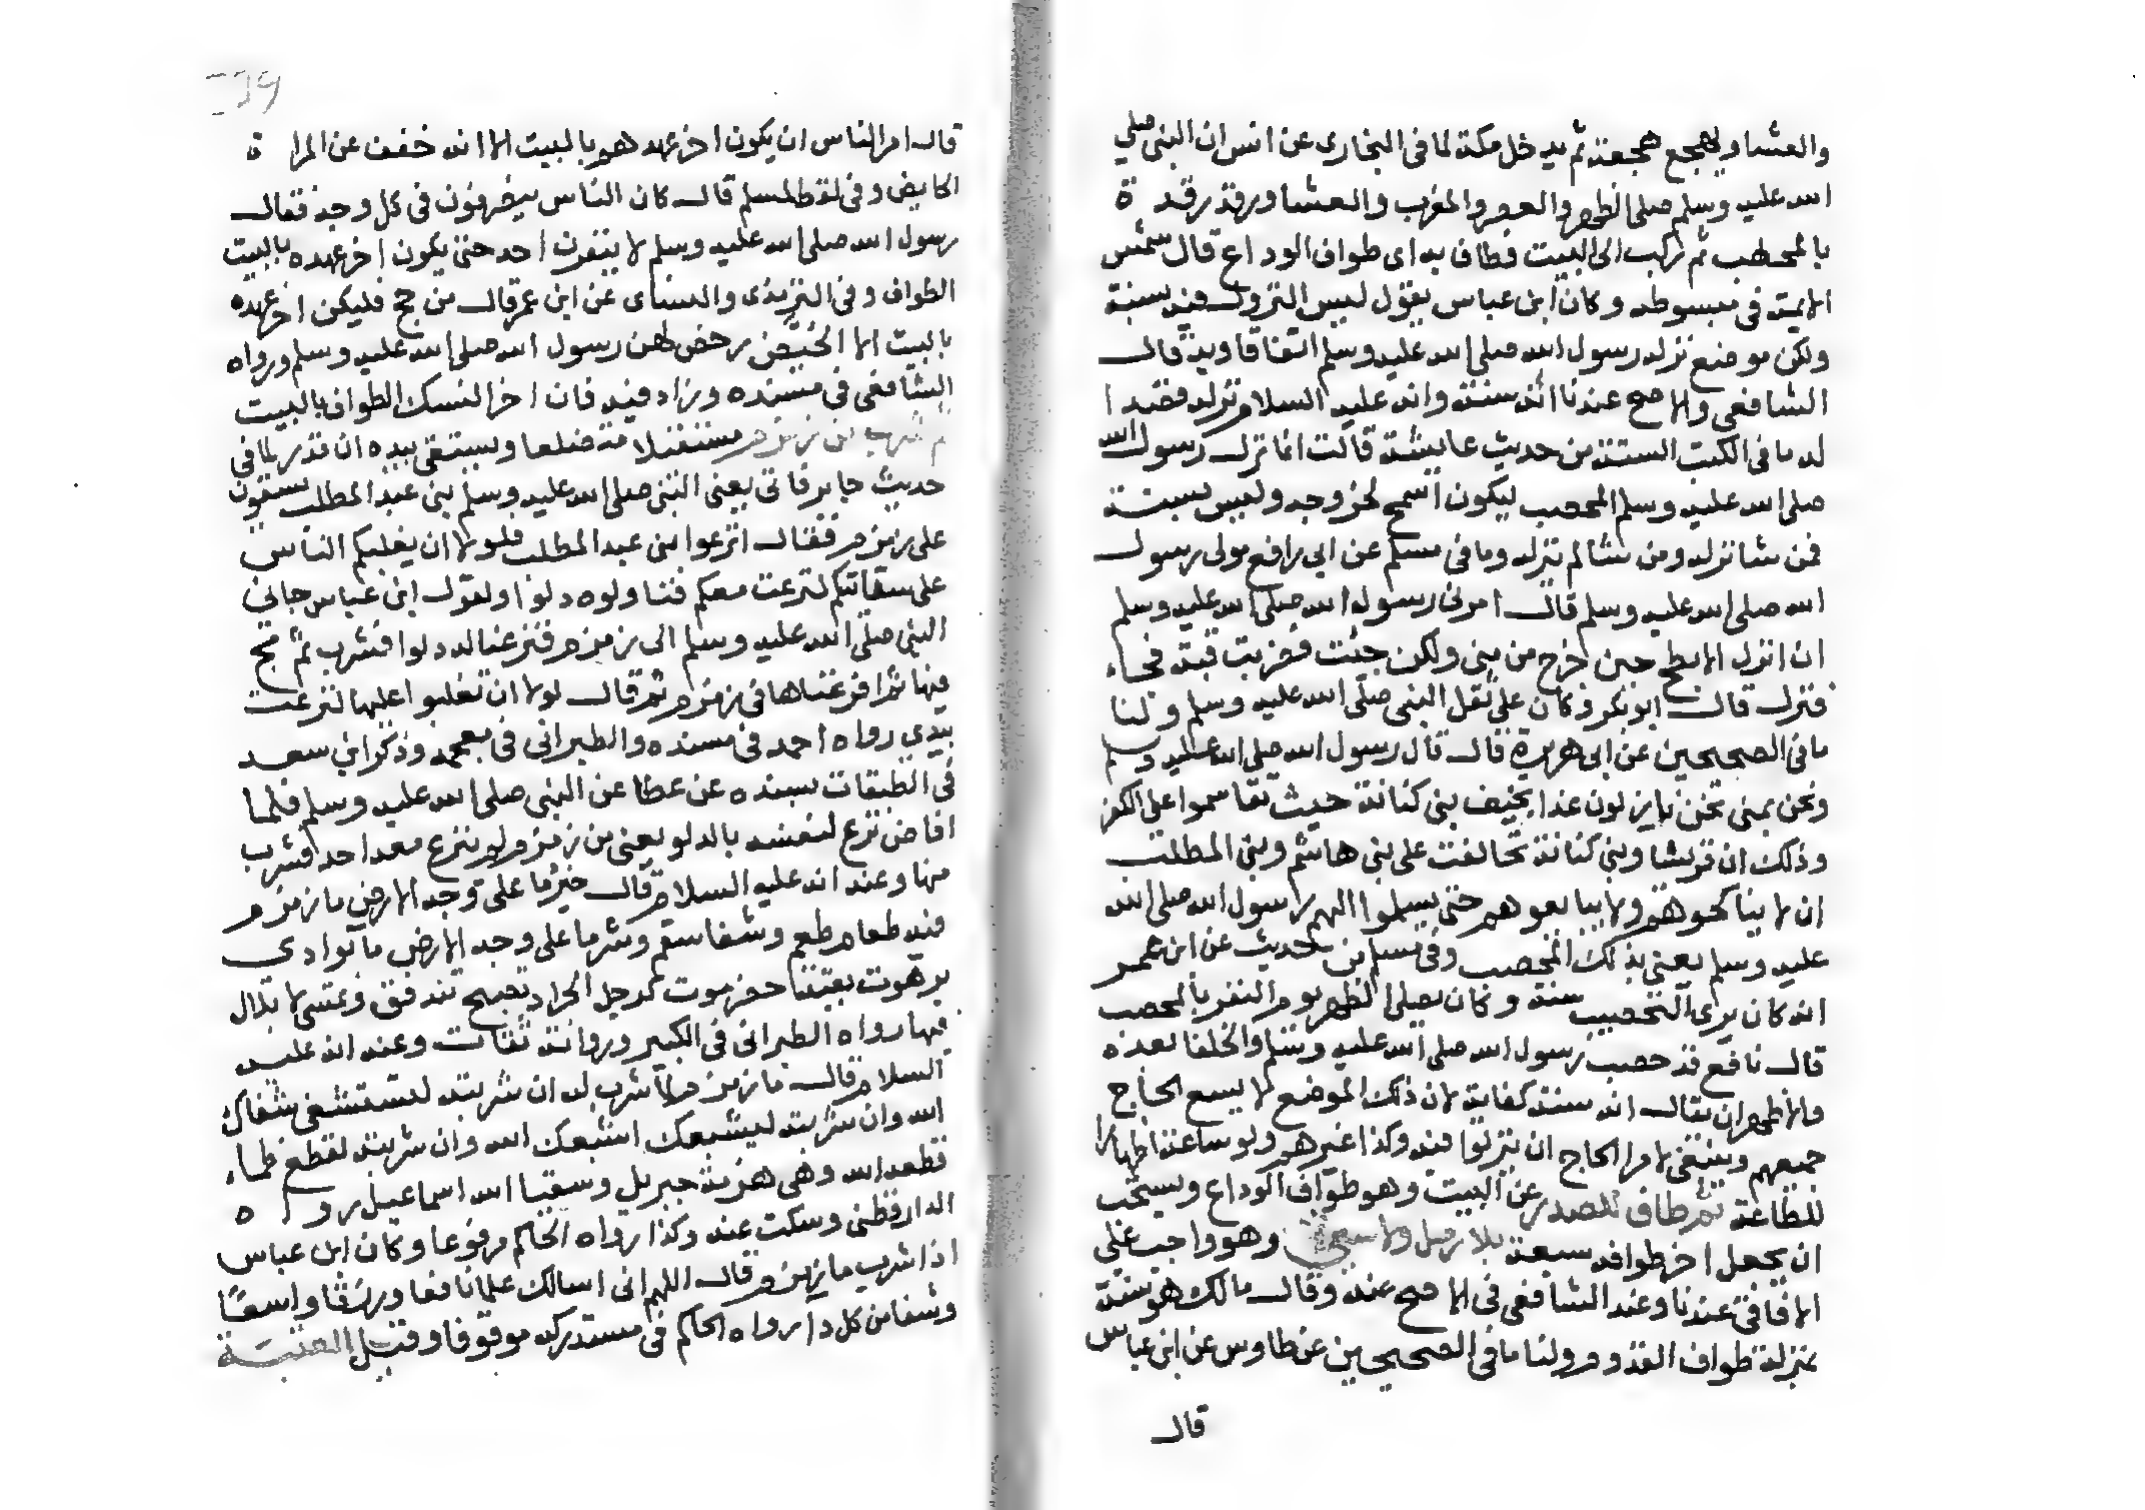 والعشا ويهجع هجعة ثم يدخل مكة لما في البخاري عن انس ان النبي صلى
الله عليه وسلم صلى الظهر والعصر والمغرب والعشا ورقد رقدة
بالمحصب ثم ركب الى البيت فطاف به اى طواف الوداع قال شمس
الايمة في مبسوطه وكان ابن عباس يقول ليس النزول فيه سنة
ولكن موضع نزله رسول الله صلى الله عليه وسلم اتفاقا وبه قال
الشافعي والاصح عندنا انه سنة وانه عليه السلام نزله قصدا
له ما في الكتب الستة من حديث عايشة قالت انما نزل رسول الله
صلى الله عليه وسلم المحصب ليكون اسمح لخروجه وليس بسنة
فمن شا نزله ومن شا لم ينزله وما في مسلم عن ابي رافع مولى رسول
الله صلى الله عليه وسلم قال امرنى رسول الله صلى الله عليه وسلم
ان انزل الابطح حين خرج من منى ولكن جئت فضربت قبته فجاء
فنزل قال ابو بكر وكان على ثقل النبى صلى الله عليه وسلم ولنا
ما في الصحيحين عن ابى هريرة قال قال رسول الله صلى الله عليه وسلم
ونحن بمنى نحن نازلون غدا بخيف بني كنانة حيث تقاسموا على الكفر
وذلك ان قريشا وبني كنانة تحالفت على بني هاشم وبني المطلب
ان لا يناكحوهم ولا يبايعوهم حتى يسلموا اليهم رسول الله صلى الله
عليه وسلم يعني بذلك المحصب وفي مسلم من حديث عن ابن عمر
انه كان يرى التحصيب سنة وكان يصلى الظهر يوم النفر بالمحصب
قال نافع قد حصب رسول الله صلى الله عليه وسلم والخلفا بعده
والاظهر ان يقال انه سنة كفاية لان ذلك الموضع لا يسع الحاج
جميعهم وينبغي لامرا الحاج ان ينزلوا فيه وكذا غيرهم ولو ساعة اظهارا
للطاعة ثم طاف للصدر عن البيت وهو طواف الوداع ويستحب
ان يجعل اخر طوافه سبعة بلا رمل ولا سعي وهو واجب على
الافاقى عندنا وعند الشافعي في الاصح عنه وقال مالك هو سنة
بمنزلة طواف القدوم ولنا ما في الصحيحين عن طاوس عن ابن عباس
قال
قال امر الناس ان يكون اخر عهدهم بالبيت الا انه خفف عن المراة
الحايض وفي لفظ لمسلم قال كان الناس ينصرفون في كل وجه فقال
رسول الله صلى الله عليه وسلم لا ينفرن احد حتى يكون اخر عهده بالبيت
الطواف وفي الترمذى والنساى عن ابن عمر قال من حج فليكن اخر عهده
بالبيت الا الحيض رخص لهن رسول الله صلى الله عليه وسلم ورواه
الشافعي في مسنده وزاد فيه فان اخر النسك الطواف بالبيت
ثم شرب من زمزم مستقبلا متضلعا ويستقي بيده ان قدر لما في
حديث جابر فاتى يعنى النبى صلى الله عليه وسلم بنى عبد المطلب يسقون
على زمزم فقال انزعوا بنى عبد المطلب فلولا ان يغلبكم الناس
على سقايتكم لنزعت معكم فناولوه دلوا ولقول ابن عباس جاني
النبى صلى الله عليه وسلم الى زمزم فنزعنا له دلوا فشرب ثم مج
فيها ثم افرغناها في زمزم ثم قال لولا ان تغلبوا عليها لنزعت
بيدي رواه احمد في مسنده والطبرانى في معجمه وذكر ابن سعد
في الطبقات بسنده عن عطا عن النبى صلى الله عليه وسلم فلما
افاض نزع لنفسه بالدلو يعنى من زمزم لم ينزع معه احد فشرب
منها وعنه انه عليه السلام قال خير ما على وجه الارض ما زمزم
فيه طعام طعم وشفا سقم وشر ما على وجه الارض ما بوادي
برهوت بقبة حضرموت كرجل الجراد تصبح تتدفق وتمسى لا بلال
فيها رواه الطبرانى في الكبير ورواته ثقات وعنه انه عليه
السلام قال ما زمزم لما شرب له ان شربته لتستشفى شفاك
الله وان شربته ليشبعك اشبعك الله وان شربته لقطع ظماء
قطعه الله وهى هزمة جبريل وسقيا الله اسماعيل رواه
الدارقطني وسكت عنه وكذا رواه الحاكم مرفوعا وكان ابن عباس
اذا شرب ما زمزم قال اللهم انى اسالك علما نافعا ورزقا واسعا
وشفا من كل دا رواه الحاكم في مستدركه موقوفا وقبل العتبة